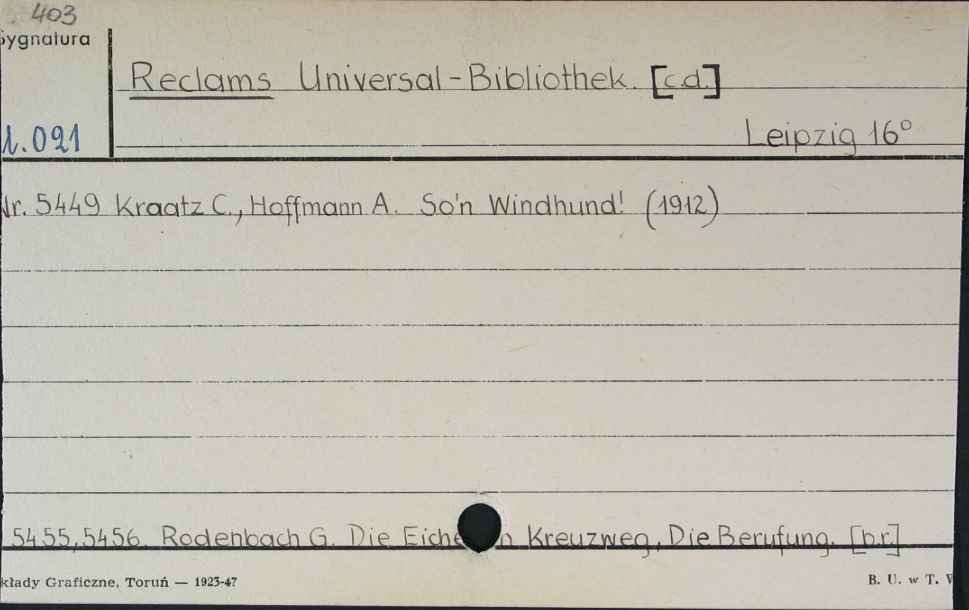 403
Sygnatura
Reclams Universal-Bibliothek. [c.d.]
1.021
Leipzig 16°
Nr. 5449 Kraatz C., Hoffmann A. So'n Windhund! (1912)
5455,5456. Rodenbach G. Die Eiche Kreuzweg, Die Berufung. [b.r.]
kłady Graficzne, Toruń — 1923-47
B. U. w T.